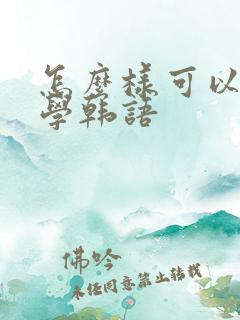 怎麼樣可以
學韩語
佛吟
未经同意禁止转载